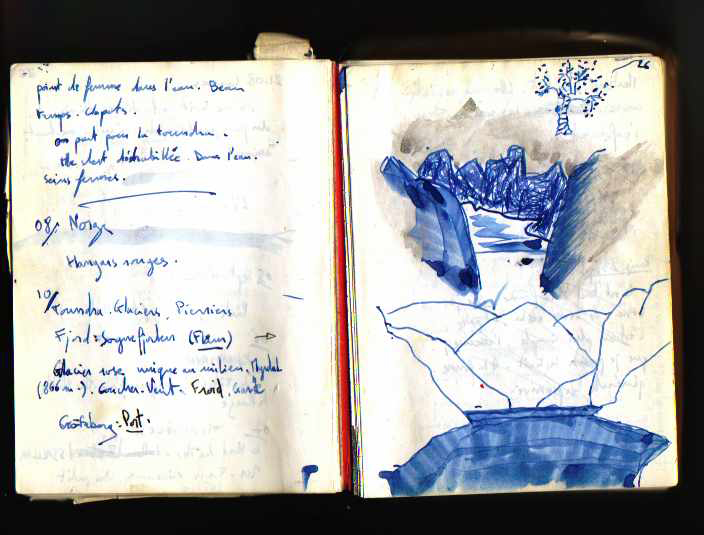 point de femme dans l'eau. Beau
temps. Clapotis.
on part pour la toundra.
Elle s'est déshabillée. Dans l'eau.
seins fermes.
08/ Norge
Hangars rouges.
10/ Toundra. Glaciers. Pierriers
Fjord: Sognefjorden (Flåm) →
Glacier rose unique au milieu.
(866 m.). Coucher. Vent. Froid.
Göteborg: Port.
26